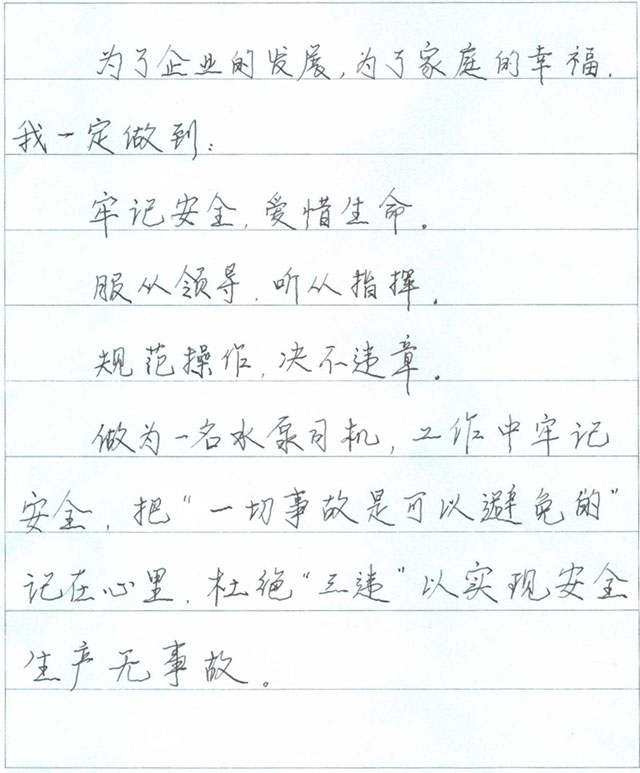 为了企业的发展,为了家庭的幸福.
我一定做到:
牢记安全,爱惜生命。
服从领导,听从指挥。
规范操作,决不违章。
做为一名水泵司机,工作中牢记
安全,把“一切事故是可以避免的”
记在心里,杜绝“三违”以实现安全
生产无事故。